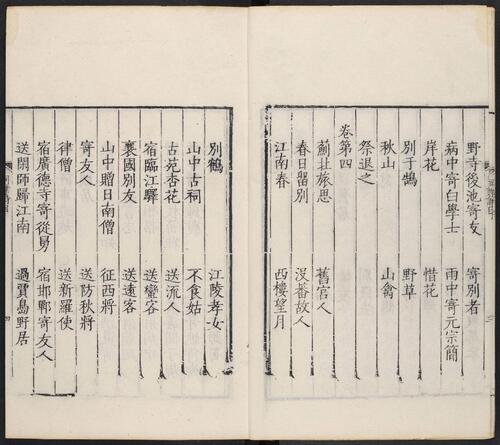 野寺後池寄友 寄別者
病中寄白學士 雨中寄元宗簡
岸花 惜花
別于鵠 野草
秋山 山禽
祭退之
卷第四
薊北旅思 舊官人
春日留別 沒蕃故人
江南春 西樓望月
別鶴 江陵孝女
山中古祠 不食姑
古苑杏花 送流人
宿臨江驛 送蠻客
襄國別友 送遠客
山中贈日南僧 征西將
寄友人 送防秋將
律僧 送新羅使
宿廣德寺寄從舅 宿邯鄲寄友人
送閑師歸江南 過賈島野居